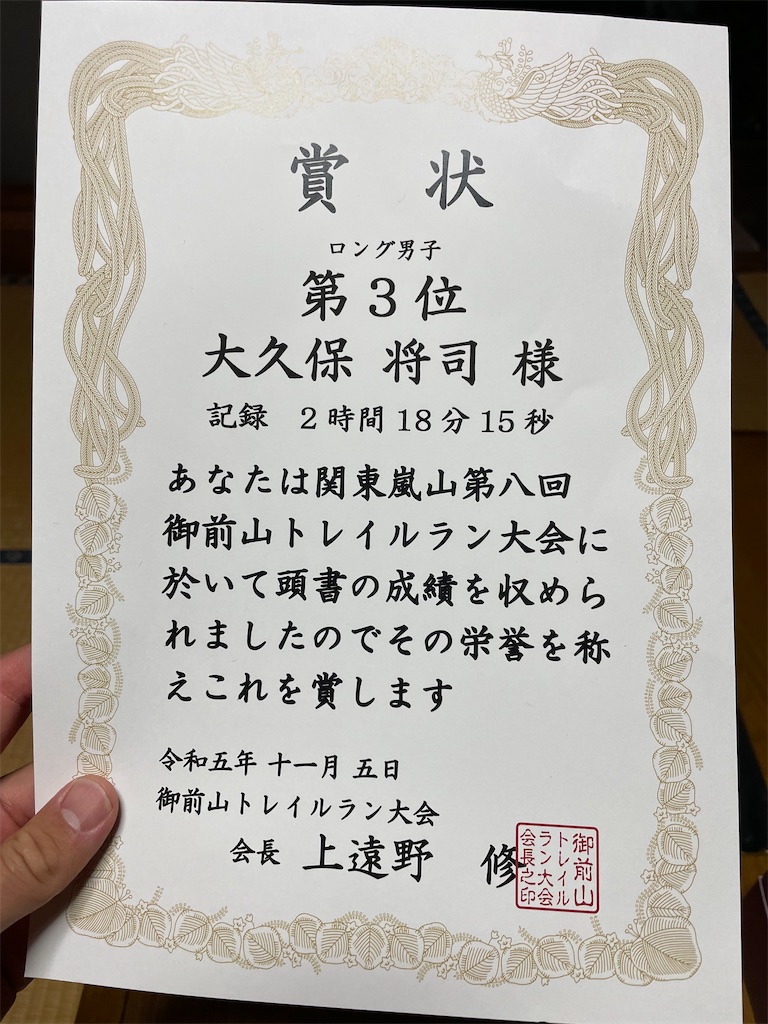 賞 状
ロング男子
第3位
大久保 将司 様
記録 2時間18分15秒
あなたは関東嵐山第八回
御前山トレイルラン大会に
於いて頭書の成績を収めら
れましたのでその栄誉を称
えこれを賞します
令和五年 十一月 五日
御前山トレイルラン大会
会長 上遠野 修
御前山
トレイル
ラン大会
会長之印